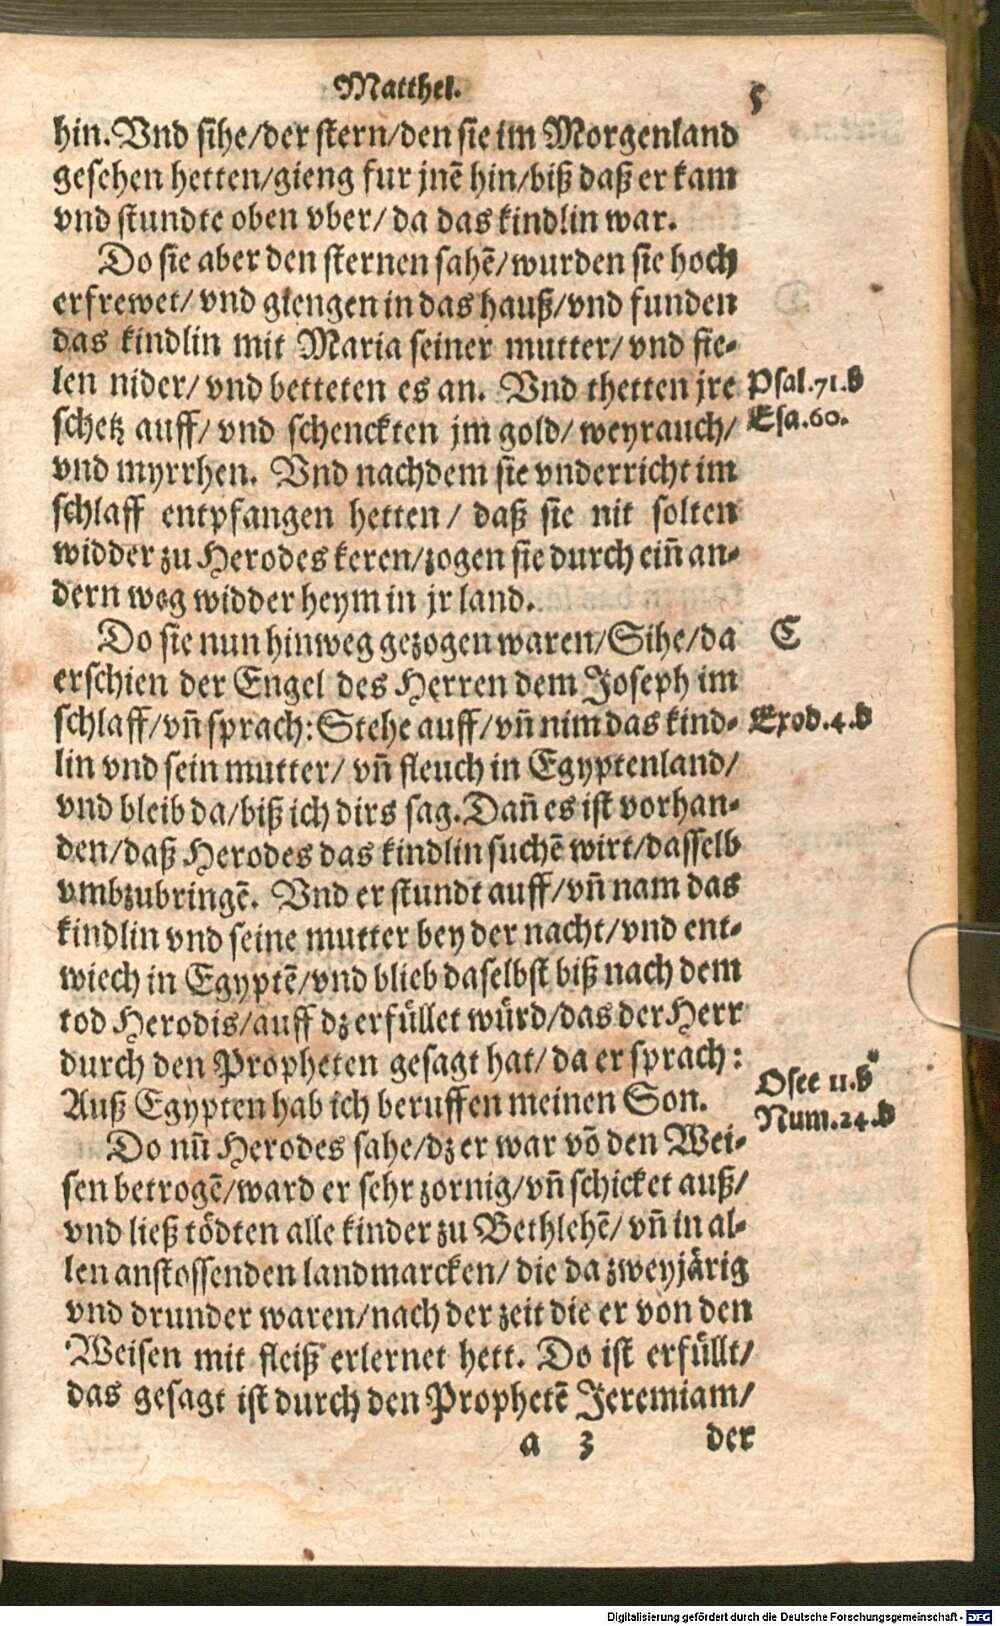 Matthei.
5
hin. Vnd sihe/der stern/den sie im Morgenland
gesehen hetten/gieng fur jnē hin/biß daß er kam
vnd stundte oben vber/ da das kindlin war.
Do sie aber den sternen sahē/wurden sie hoch
erfrewet/ vnd giengen in das hauß/vnd funden
das kindlin mit Maria seiner mutter/ vnd fie-
len nider/ vnd betteten es an. Vnd thetten jre
Psal.71.b
schetz auff/ vnd schenckten jm gold/ weyrauch/
Esa.60.
vnd myrrhen. Vnd nachdem sie vnderricht im
schlaff entpfangen hetten/ daß sie nit solten
widder zu Herodes keren/zogen sie durch ein̄ an-
dern weg widder heym in jr land.
Do sie nun hinweg gezogen waren/Sihe/da
C
erschien der Engel des Herren dem Joseph im
schlaff/vn̄ sprach: Stehe auff/vn̄ nim das kind-
Exod.4.d
lin vnd sein mutter/ vn̄ fleuch in Egyptenland/
vnd bleib da/biß ich dirs sag. Dan̄ es ist vorhan-
den/daß Herodes das kindlin suchē wirt/dasselb
vmbzubringē. Vnd er stundt auff/vn̄ nam das
kindlin vnd seine mutter bey der nacht/vnd ent-
wiech in Egyptē/vnd blieb daselbst biß nach dem
tod Herodis/auff dz erfüllet würd/das der Herr
durch den Propheten gesagt hat/ da er sprach:
Osee 11.b
Auß Egypten hab ich beruffen meinen Son.
Num.24.b
Do nū Herodes sahe/dz er war vō den Wei-
sen betrogē/ward er sehr zornig/vn̄ schicket auß/
vnd ließ tödten alle kinder zu Bethlehē/ vn̄ in al-
len anstossenden landmarcken/ die da zweyjärig
vnd drunder waren/nach der zeit die er von den
Weisen mit fleiß erlernet hett. Do ist erfüllt/
das gesagt ist durch den Prophetē Jeremiam/
a 3
der
Digitalisierung gefördert durch die Deutsche Forschungsgemeinschaft - DFG